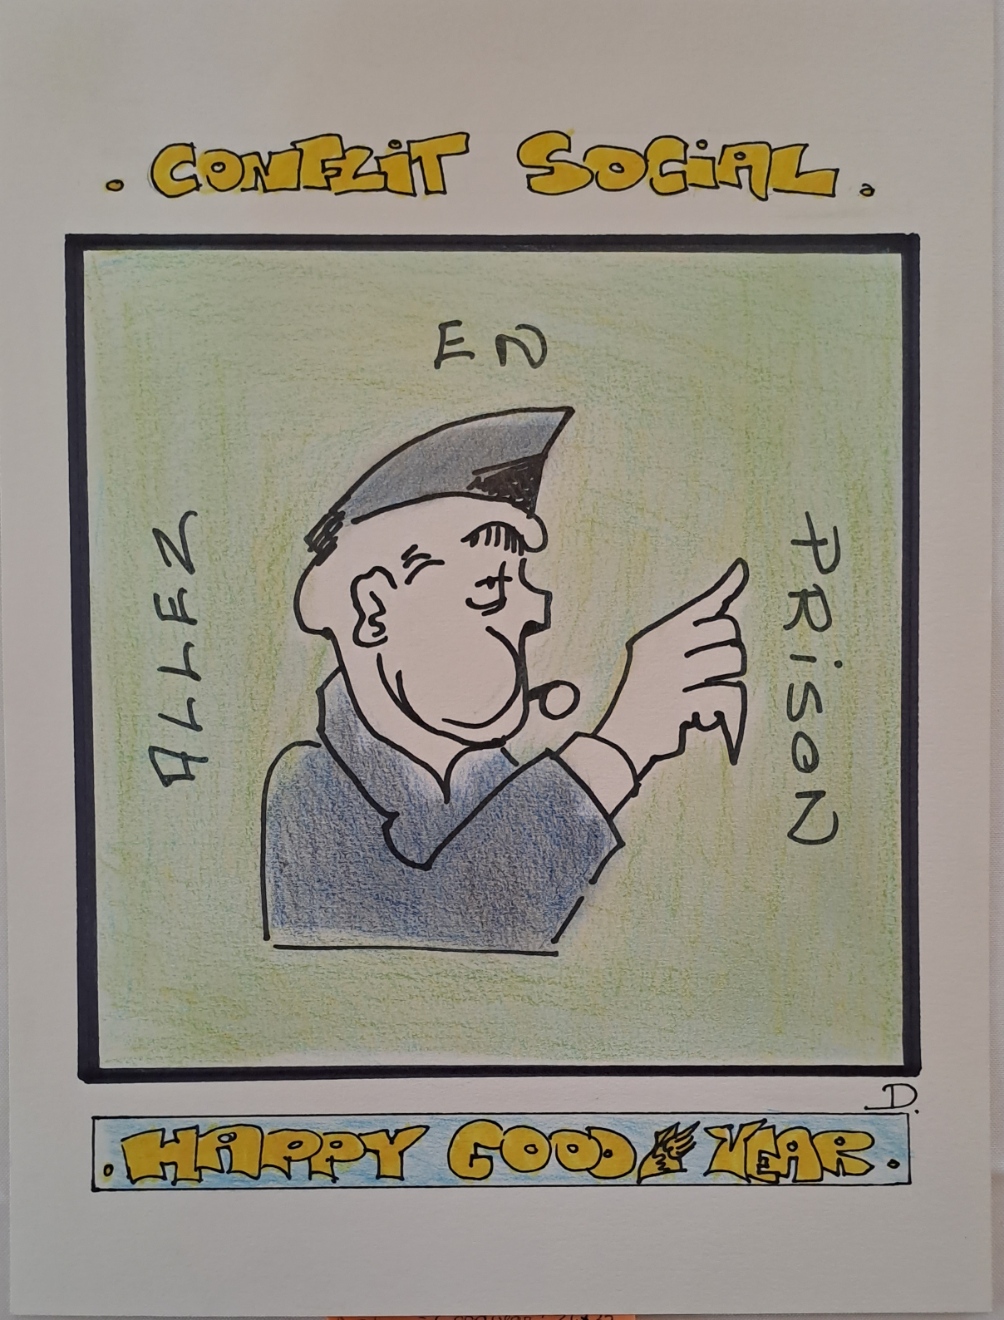 . CONFLiT SOCiAL .
EN
ALLEZ
PRiSON
D.
. HAPPY GOOD YEAR .